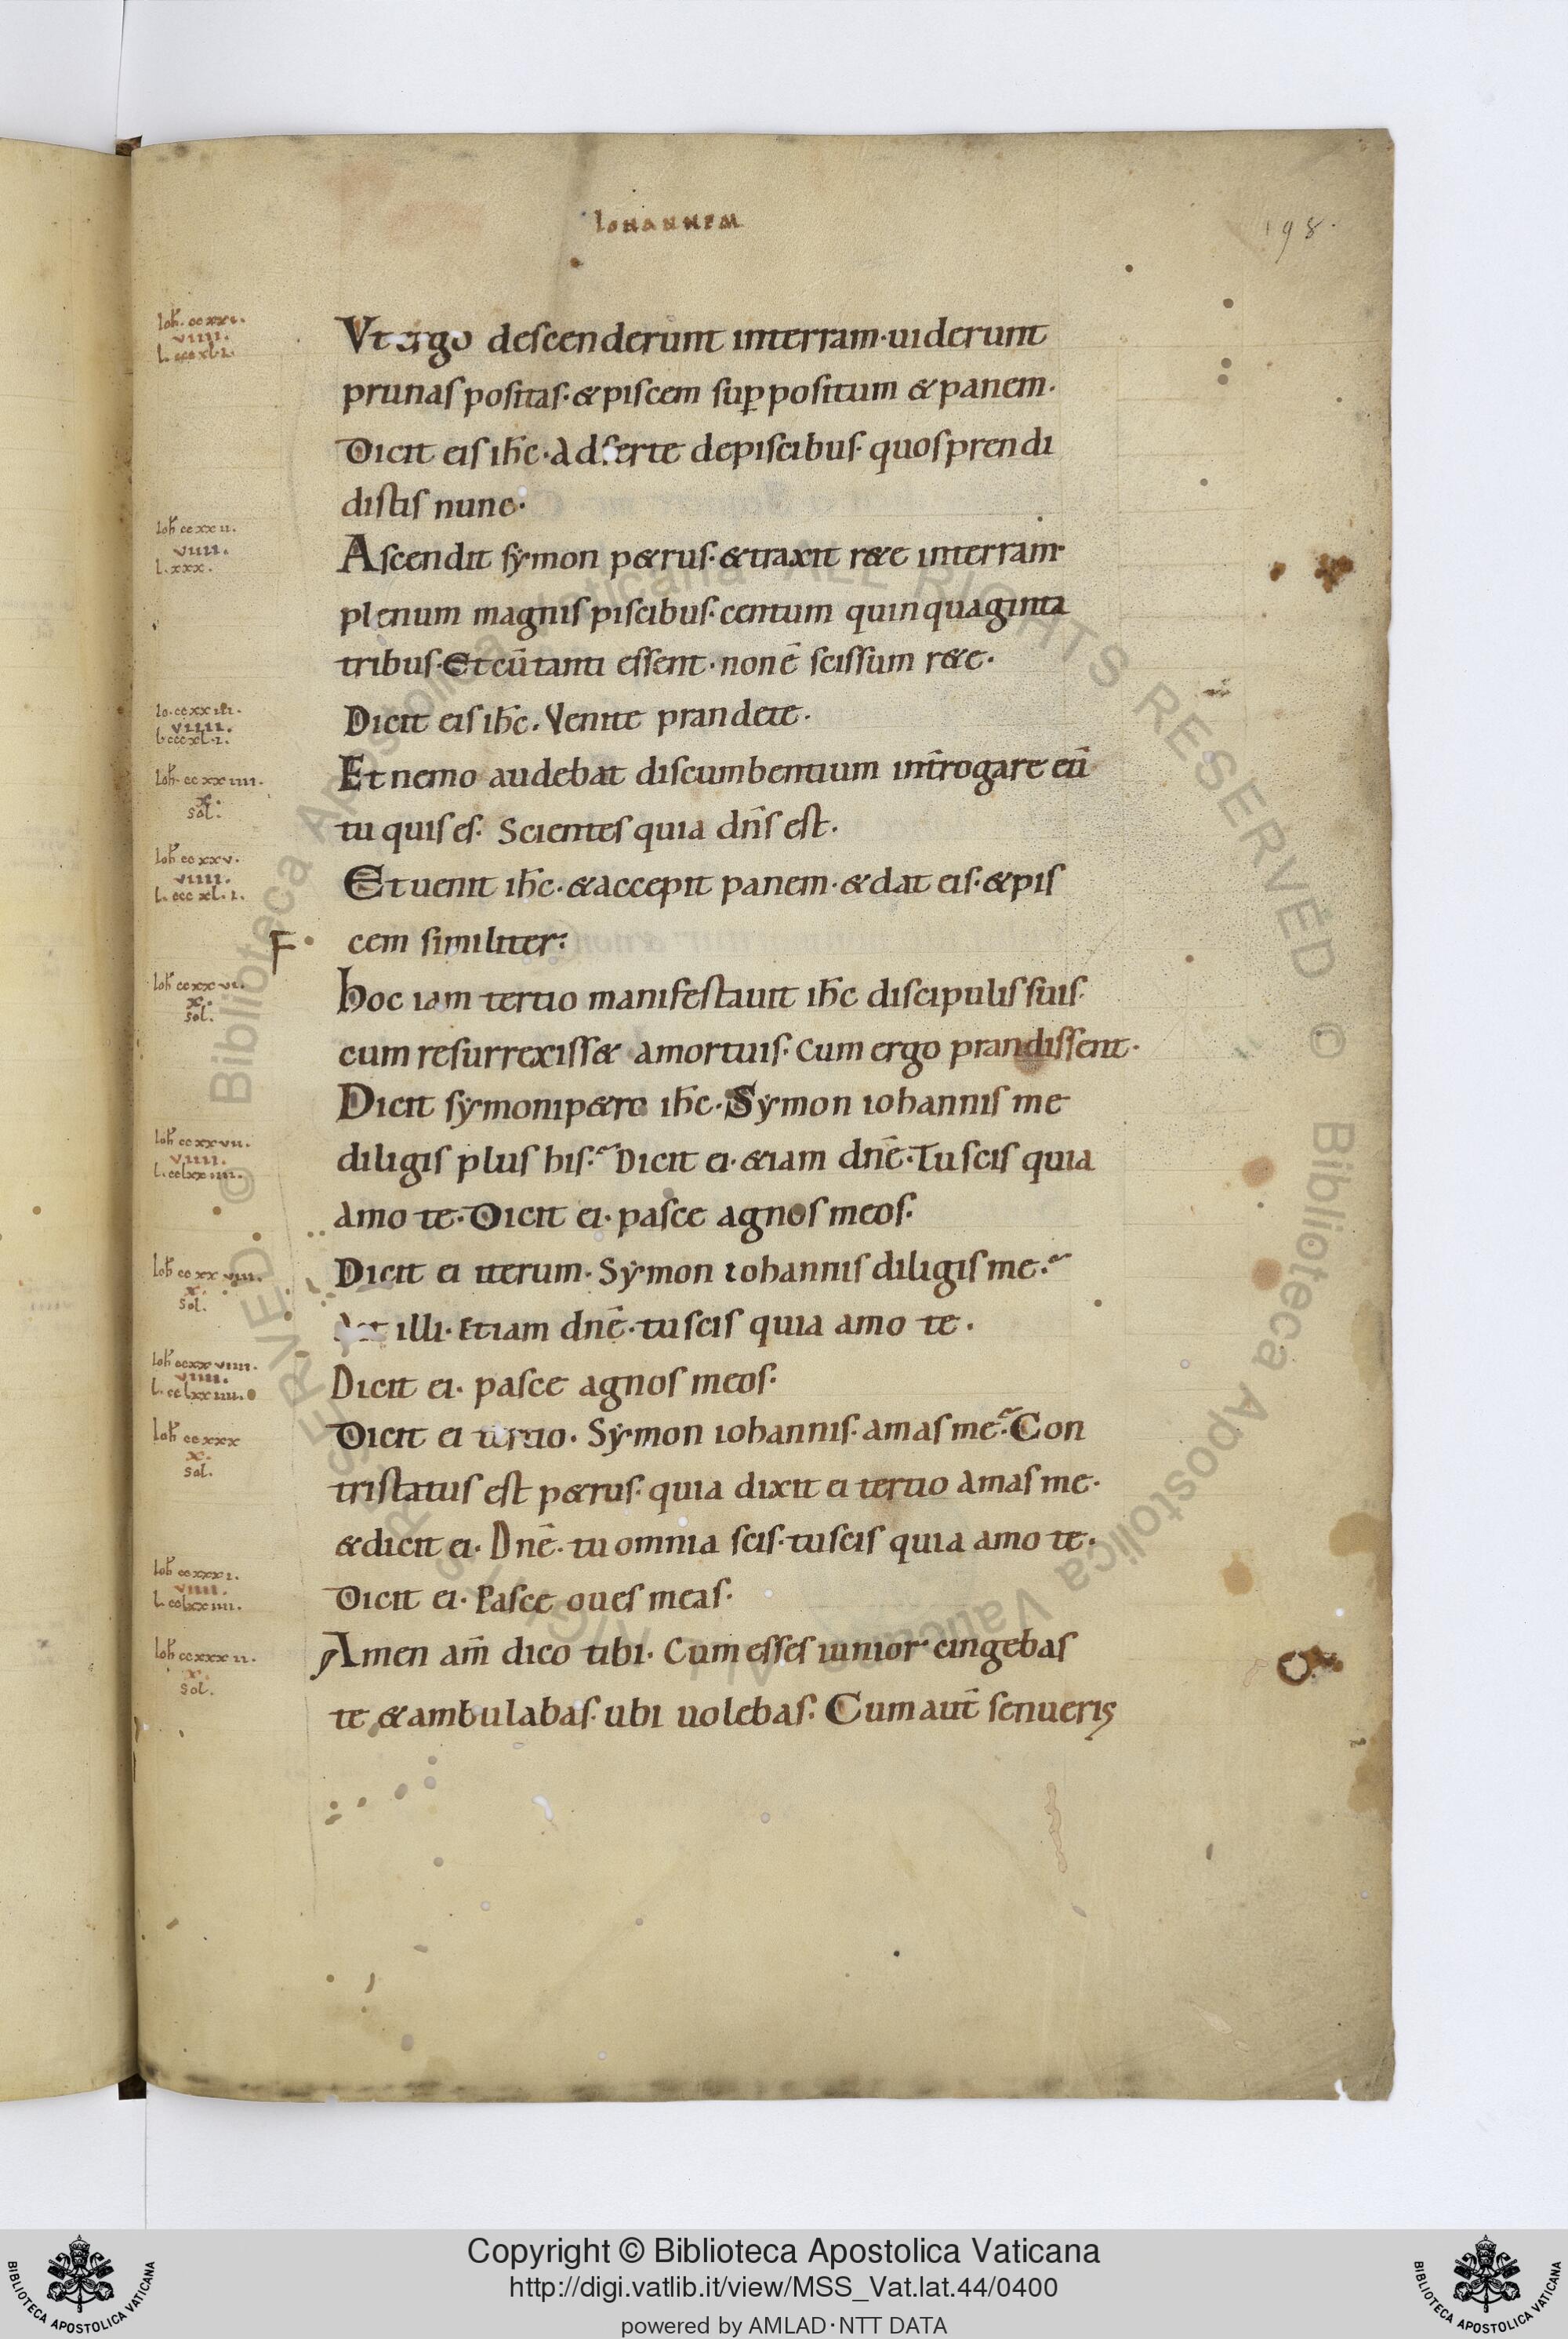 IOHANNEM
198.
Ioh. ccxxi.
viiii.
L. cccxli.
Vt ergo descenderunt interram·uiderunt
prunas positas·& piscem suppositum & panem·
Dicit eis ih̄c·Adferte depiscibus· quosprendi
distis nunc·
Ioh ccxxii.
viiii.
L. xxx.
Ascendit sẏmon p&rus·&traxit r&e interram·
plenum magnis piscibus·centum quinquaginta
tribus·Et cū tanti essent·non ē scissum r&e·
Io. ccxxiii.
viiii.
L. cccxl.i.
Dicit eis ih̄c·Venite prandete·
Ioh. ccxxiiii.
x.
sol.
Et nemo audebat discumbentium int̄rogare eū
tu quis es· Scientes quia dn̄s est·
Ioh ccxxv.
viiii.
L. cccxl.i.
Et uenit ih̄c·&accepit panem·&dat eis·&pis
F· cem similiter:
Ioh ccxxvi.
x.
sol.
hoc iam tertio manifestauit ih̄c discipulis suis·
cum resurrexiss& amortuis· Cum ergo prandissent·
Dicit sẏmonip&ro ih̄c·Sẏmon iohannis me
Ioh ccxxvii.
viiii.
L. cclxxiiii.
diligis plus his·~ Dicit ei·&iam dn̄e·Tu scis quia
amo te·Dicit ei·pasce agnos meos·
Ioh ccxxviii.
x.
sol.
Dicit ei iterum·Sẏmon iohannis diligis me·~
Ait illi·Etiam dn̄e·tu scis quia amo te·
Ioh ccxxviiii.
viiii.
L. cclxxiiii.
Dicit ei· pasce agnos meos·
Ioh ccxxx
x.
sol.
Dicit ei tertio· Sẏmon iohannis·amas me·~ Con
tristatus est p&rus·quia dixit ei tertio amas me·
&dicit ei· Dn̄e·tu omnia scis·tu scis quia amo te·
Ioh ccxxxi.
viiii.
L. cclxxiiii.
Dicit ei·Pasce oues meas·
Ioh ccxxxii.
x.
sol.
Amen am̄ dico tibi· Cum esses iunior cingebas
te &ambulabas·ubi uolebas· Cum aut̄ senueris
© Biblioteca Apostolica Vaticana ALL RIGHTS RESERVED © Biblioteca Apostolica Vaticana ALL RIGHTS RESERVED.
Copyright © Biblioteca Apostolica Vaticana
http://digi.vatlib.it/view/MSS_Vat.lat.44/0400
powered by AMLAD·NTT DATA
BIBLIOTECA APOSTOLICA VATICANA
BIBLIOTECA APOSTOLICA VATICANA